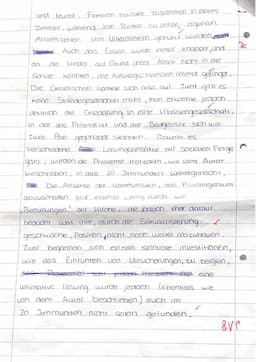 und teurer. Familien hausten zusammen in einem
Zimmer, während ihre Räume zu ihren eigenen
Arbeitszeiten von Untermietern genutzt wurden.
Auch das Essen wurde immer knapper und
da die Kinder auf Grund ihrer Arbeit nicht in die
Schule konnten, die Aufstiegschancen immer geringer.
Die Gesellschaft spaltete sich also auf. Zwar gab es
keine Ständegesellschaft mehr, man erkannte jedoch
dennoch die Gliederung in eine Klassengesellschaft,
in der das Proletariat und die Bourgeoisie sich wie
zwei Pole gegenüber standen. Obwohl es
verschiedene Lösungsansätze zur sozialen Frage
gab, wurden die Probleme trotzdem, wie vom Autor
beschrieben, in das 20. Jahrhundert weitergereicht.
Die Ansätze der Kommunisten, das Privateigentum
abzuschaffen, ebenso wenig durch, wie
Bemühungen der Kirche, die jedoch eher darauf
bedacht war ihre, durch die Säkularisierung
geschwächte, Position, nicht noch weiter abzubauen.
Zwar begannen sich einzeln sinnvolle Investitionen,
wie das Einführen von Versicherungen, zu zeigen,
eine
ultimative Lösung wurde jedoch (ebenfalls wie
von dem Autor beschrieben) auch im
20. Jahrhundert nicht sofort gefunden.
8VP